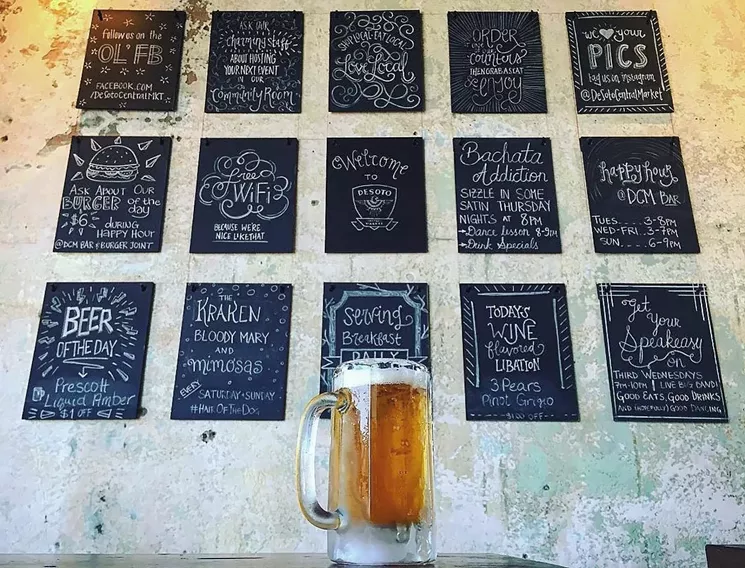 follow us on the
OL' FB
FACEBOOK.COM
/DeSotoCentralMKT
ASK OUR
charming staff
ABOUT HOSTING
YOUR NEXT EVENT
IN OUR
Community Room
SHOP LOCAL EAT LOCAL
Love Local
ORDER
at our
counters
THEN GRAB A SEAT
& ENJOY
we ♥ your
PICS
tag us on instagram
@DeSotoCentralMarket
ASK ABOUT OUR
BURGER of the day
$6 DURING
HAPPY HOUR
@DCM BAR & BURGER JOINT
free
WiFi
BECAUSE WE'RE
NICE LIKE THAT
Welcome
TO
DESOTO
CENTRAL
MARKET
Bachata
Addiction
SIZZLE IN SOME
SATIN THURSDAY
NIGHTS AT 8PM
→Dance Lesson 8-9PM
→Drink Specials
happy hour
@ DCM BAR
TUES.... 3-8PM
WED-FRI... 3-7PM
SUN.... 6-9PM
BEER
OF THE DAY
Prescott
Liquid Amber
$1 OFF
THE
KRAKEN
BLOODY MARY
AND
MIMOSAS
EVERY
SATURDAY & SUNDAY
#HAIL OF THE DOG
Serving
Breakfast
DAILY
TODAYS
WINE
flavored
LIBATION
3 Pears
Pinot Grigio
$1.00 OFF
Get Your
Speakeasy
on
THIRD WEDNESDAYS
7PM-10PM | LIVE BIG BAND!
GOOD EATS, GOOD DRINKS
AND (HOPEFULLY) GOOD DANCING